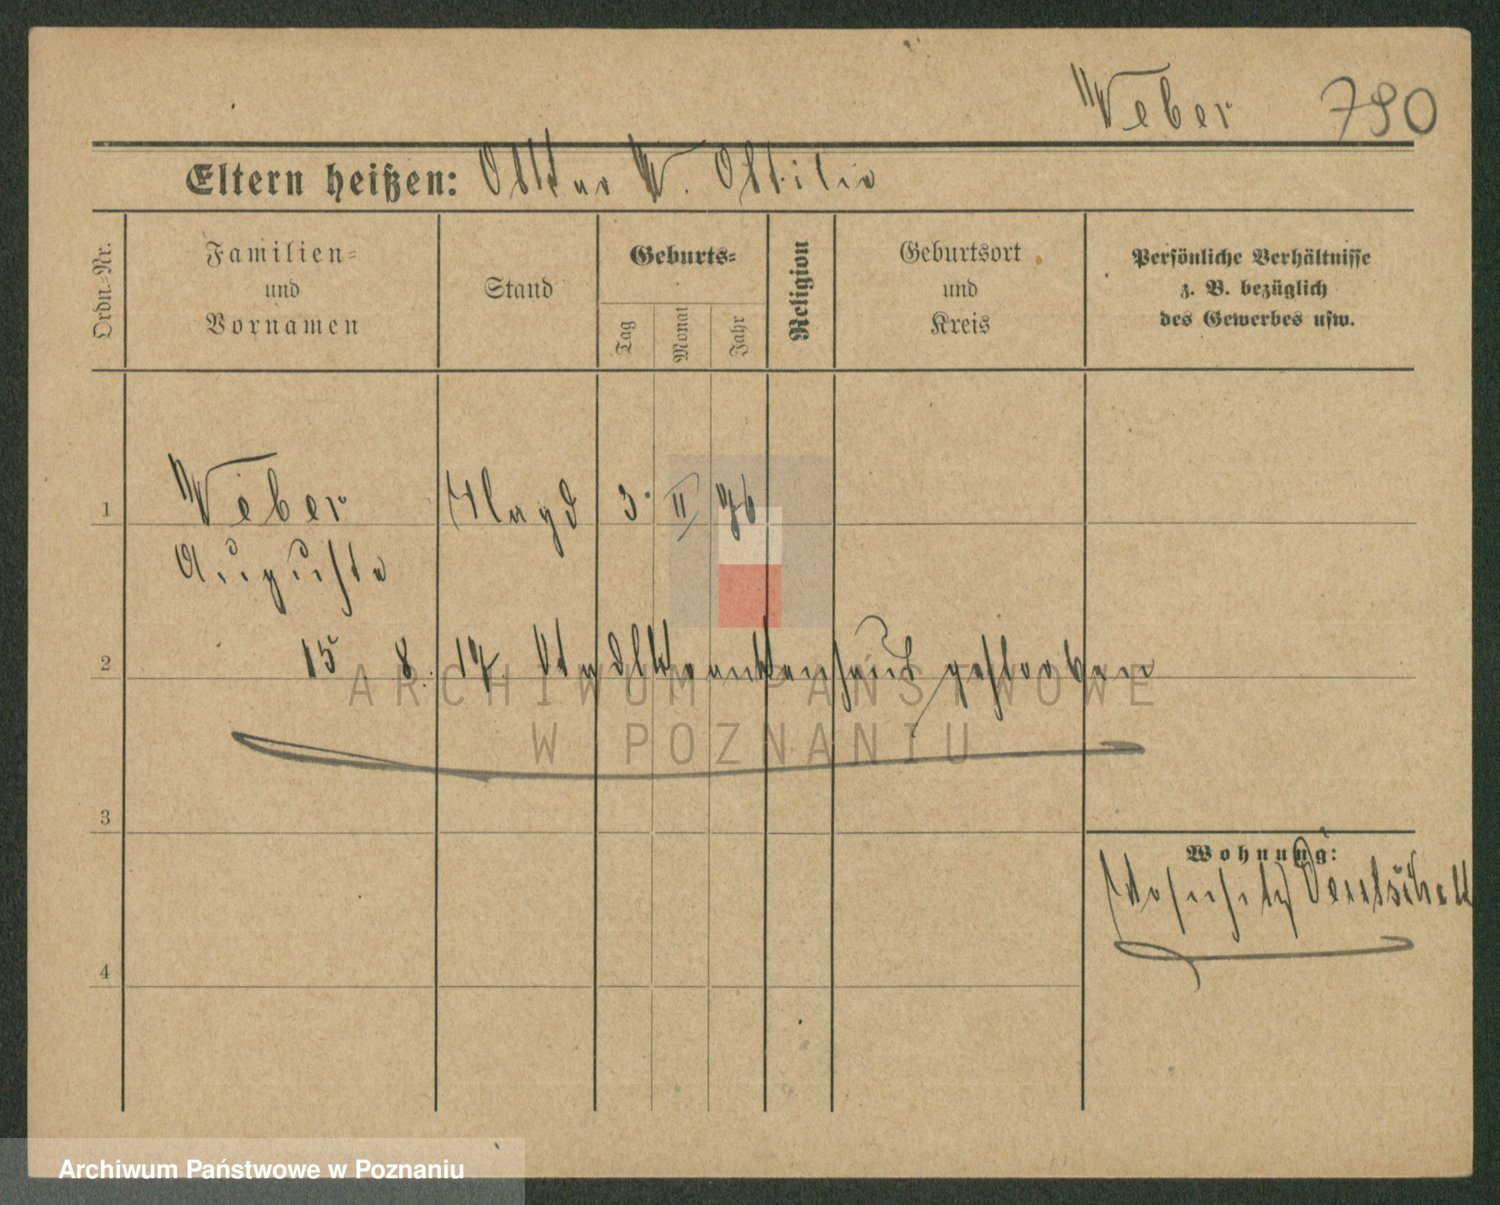 Weber 790
Eltern heißen: W. Ottilie
Ordn.-Nr.
Familien=
und
Vornamen
Stand
Geburts=
Tag
Monat
Jahr
Religion
Geburtsort
und
Kreis
Persönliche Verhältnisse
z. B. bezüglich
des Gewerbes usw.
1
Weber Magd 3. II 76
Auguste
2
15. 8. 17. Stadtkrankenhaus gestorben
3
4
Wohnung:
ARCHIWUM PAŃSTWOWE
W POZNANIU
Archiwum Państwowe w Poznaniu